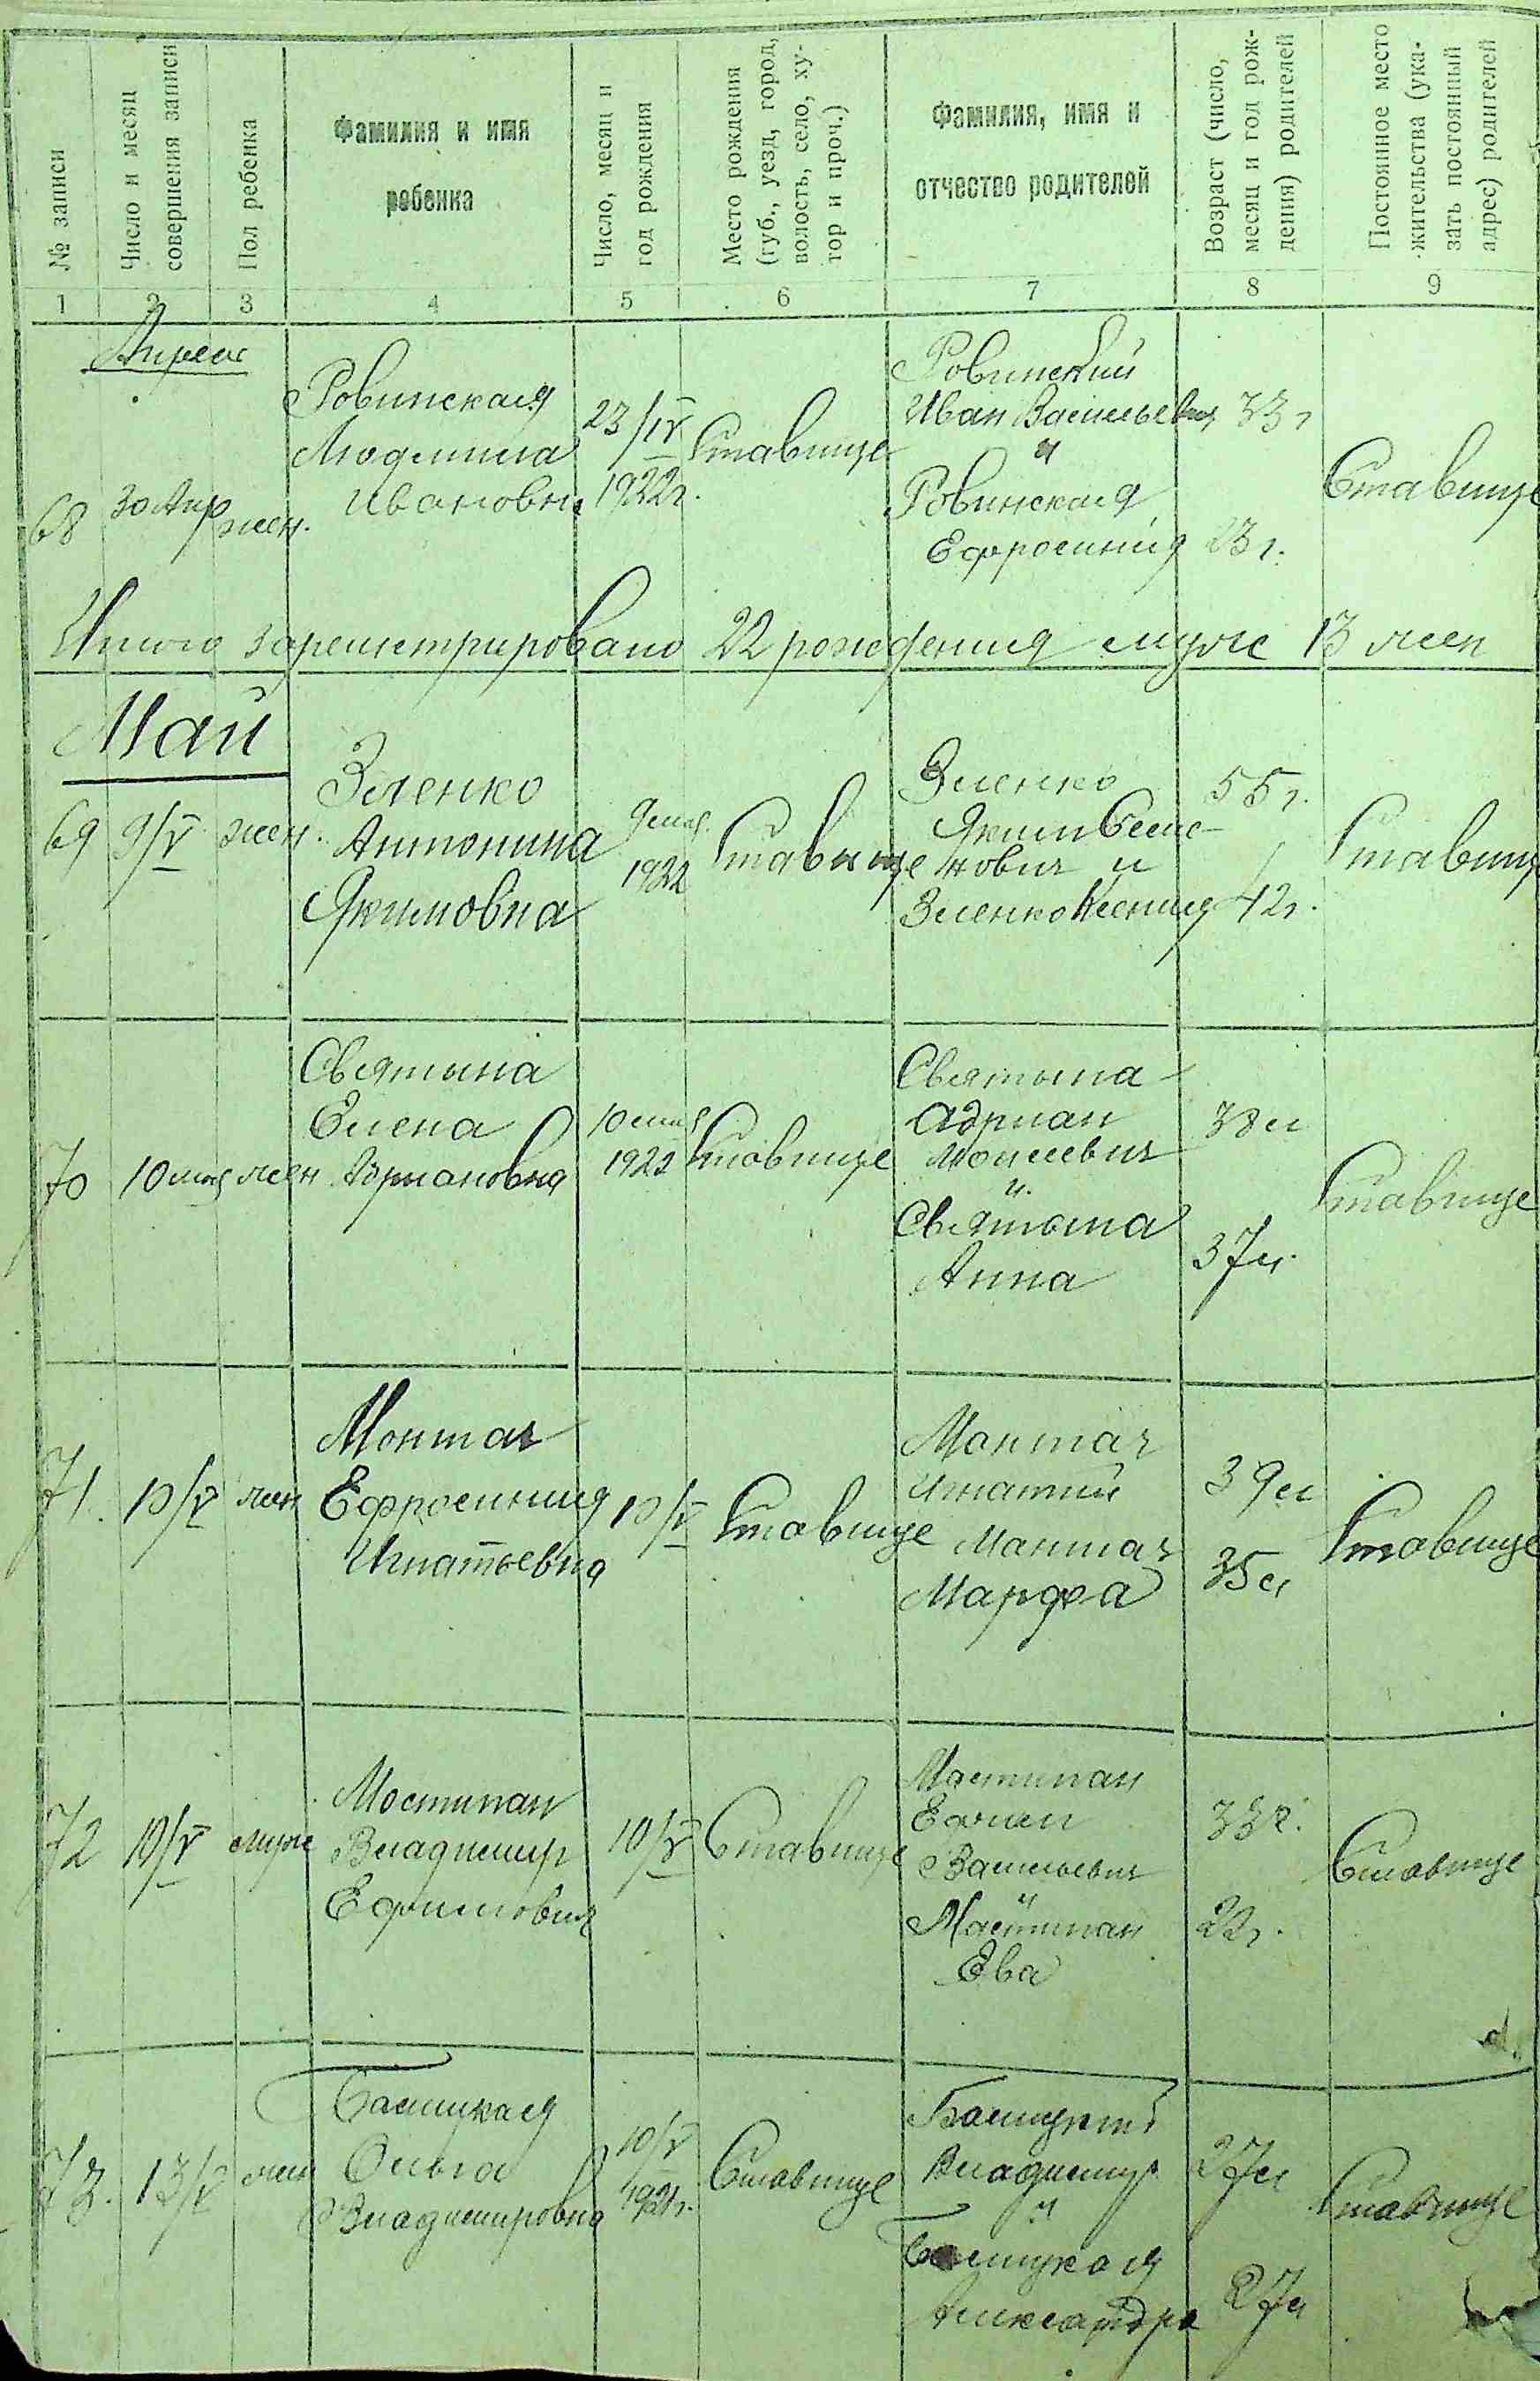 № записи
Число и месяц
совершения записи
Пол ребенка
Фамилия и имя
ребенка
Число, месяц и
год рождения
Место рождения
(губ., уезд, город,
волость, село, ху-
тор и проч.)
Фамилия, имя и
отчество родителей
Возраст (число,
месяц и год рож-
дения) родителей
Постоянное место
жительства (ука-
зать постоянный
адрес) родителей
1 2 3 4 5 6 7 8 9
Апрель
68
30 Апр
жен.
Ровинская
Людмила
Ивановна
23/IV
1922г.
Ставище
Ровинский
Иван Васильевич
и
Ровинская
Ефросиния
33 г
23 г.
Ставище
Итого зарегистрировано 22 рождения муж 13 жен
Май
69
9/V
жен.
Зленко
Антонина
Якимовна
9 мая
1922
Ставище
Зленко
Яким Семе-
нович и
Зленко Ксения
55 г.
42 г.
Ставище
70
10 мая
жен
Святына
Елена
Адриановна
10 мая
1922
Ставище
Святына
Адриан
Моисеевич
и
Святына
Анна
38 л
37 л.
Ставище
71.
10/V
жен
Монтач
Ефросиния
Игнатьевна
10/V
Ставище
Монтач
Игнатий
Монтач
Марфа
39 л
35 л
Ставище
72
10/V
муж
Мостипан
Владимир
Ефимович
10/V
Ставище
Мостипан
Ефим
Васильевич
и
Мостипан
Ева
33 г.
22 г.
Ставище
73.
13/V
жен
Ольга
Владимировна
10/V
Ставище
Владимир
и
Александра
27 л
27 л
Ставище